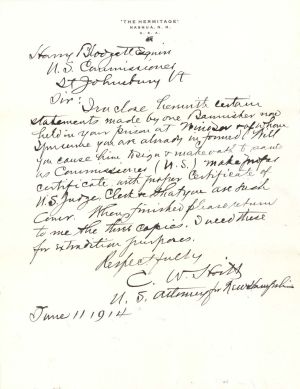 "THE HERMITAGE"
NASHUA, N. H.
U. S. A.
Harry Blodgett Esquire
U. S. Commissioner
St Johnsbury Vt
Sir:
I enclose herewith certain
statements made by one Bannister now
held in your prison at Windsor of whom
I presume you are already informed. Will
you cause him to sign & make oath to same
as Commissioner (U.S.) make proper
certificate with proper certificate of
U.S. Judge, Clerk that you are such
Comr. When finished please return
to me the three copies. I need these
for extradition purposes.
Respectfully
C. W. Hoitt
U. S. Attorney for New Hampshire
June 11 1914